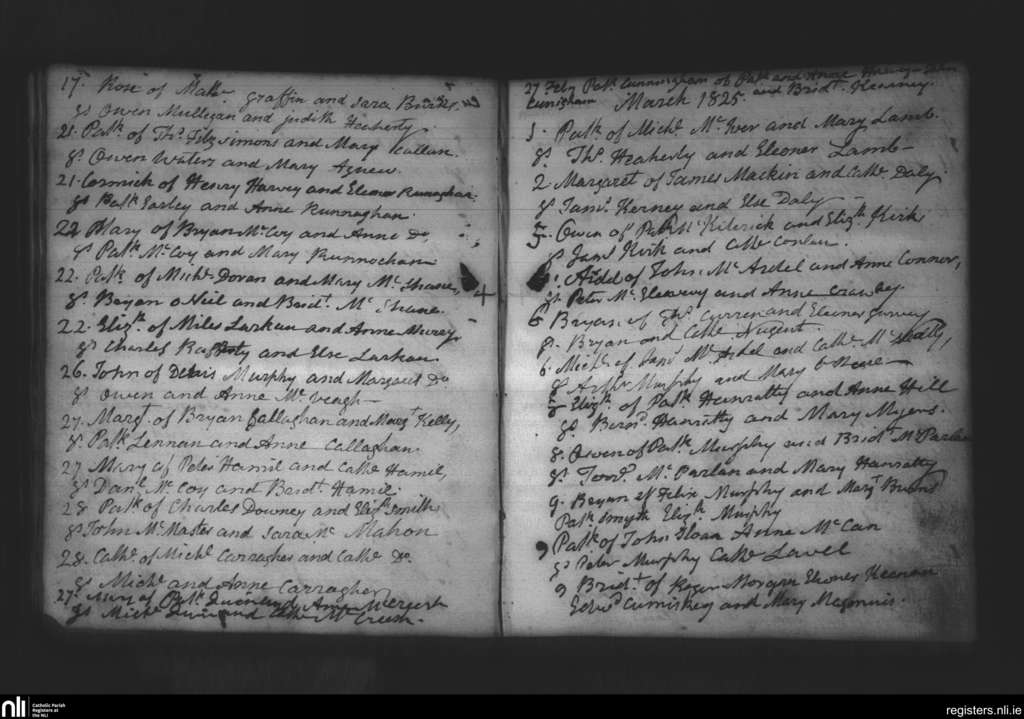 17. Rose of Matw. Graffin and Sara Burks.
gs Owen Mullegan and Judith Heherty
21. Patk. of Ths. Fitzsimons and Mary Callan.
gs. Owen Waters and Mary Agnew.
21. Cormick of Henry Harvey and Elenor Runaghan.
gs Patk Earley and Anne Runnaghan.
22 Mary of Bryan McCoy and Anne Do,
gs Patk. McCoy and Mary Runnochan
22. Patk. of Michl. Doran and Mary McShane,
gs. Bryan oNeil and Bridt. McShane.
22. Elizh. of Miles Larkan and Anne Murey
gs Charles Rafferty and Else Larkan.
26. John of Denis Murphy and Margaret Do
gs Owen and Anne McVeagh
27. Margt. of Bryan Callaghan and Margt Kelly,
gs. Patk Lennan and Anne Callaghan.
27 Mary of Peter Hamil and Cathe Hamil,
gs Danl. McCoy and Bridt. Hamil.
28 Patk of Charles Downey and Elizh Smith
gs John McMaster and Sara McMahon
28. Cathe. of Michl Carragher and Cathe Do.
gs Michl. and Anne Carragher
27. Mary of Patk Quin and Anne
gs Michl Quin and Cathe McCreesh.
27 Feby Patk. Cunningham of Patk and Anne
Cuningham and Bridt. Kearney.
March 1825.
1. Patk of Michl McIver and Mary Lamb.
gs Ths. Heaherty and Eleoner Lamb
2 Margaret of James Mackin and Cathe Daly.
gs Jams. Kerney and Else Daly
5. Owen of Patk Kilerick and Elizh Kirk
gs Jams Kirk and Cathe Conlan.
Ardel of John McArdel and Anne Connor,
gs Peter McEleavey and Anne Crawley.
6 Bryan of Ths. Curren and Elenor
gs. Bryan and Cathe Nugent.
6. Michl. of Jams McArdel and Cathe
gs Arthr Murphy and Mary
Elizh of Patk. Hanratty and Anne Hill
gs. Bernd. Hanratty and Mary Myers.
8. Owen of Patk. Murphy and Bridt. McParlan
gs. McParlan and Mary Hanratty
9. Bryan of Felix Murphy and Margt
Patk Smyth Elizh. Murphy
9 Patk. of John Sloan Anne McCan
gs Peter Murphy Cathe Lavel
9 Bridt of Morgan Elenor Keenan
Edwd Cumiskey and Mary
nli
Catholic Parish
Registers at
the NLI
registers.nli.ie